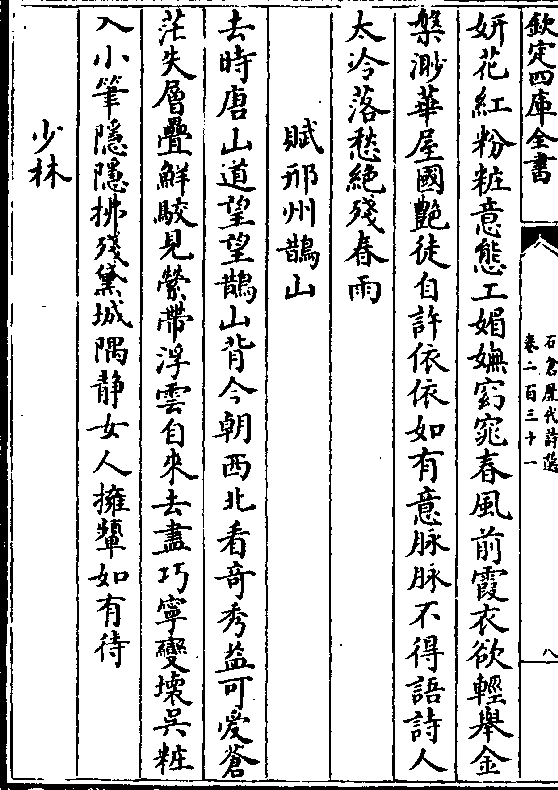 欽定四庫全書
石倉歷代詩選
卷二百三十一
八
妍花紅粉粧意態工媚嫵窈窕春風前霞衣欲輕舉金
槃渺華屋國艶徒自許依依如有意脉脉不得語詩人
太冷落愁絶殘春雨
賦邢州鵲山
去時唐山道望望鵲山背今朝西北看竒秀益可愛蒼
茫失層疊鮮駮見縈帶浮雲自來去盡巧寧變壞吳粧
入小筆隱隱拂殘黛城隅静女人擁顰如有待
少林